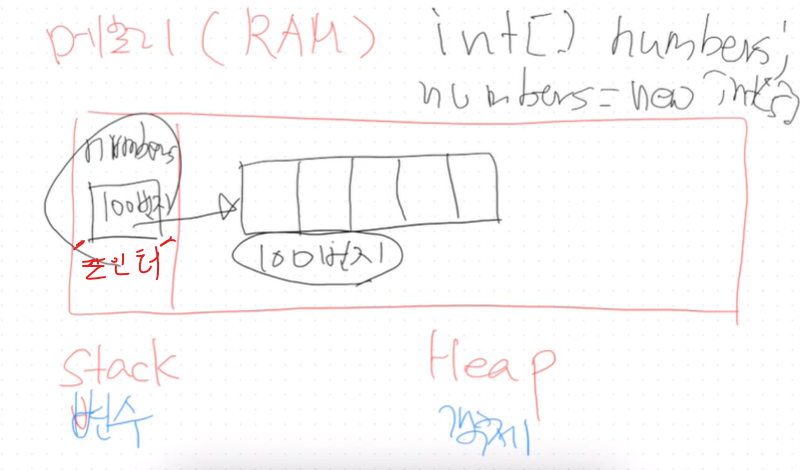 메모리 (RAM)
int[] numbers;
numbers = new int[5]
numbers
100번지
"포인터"
100번지
Stack
변수
Heap
객체